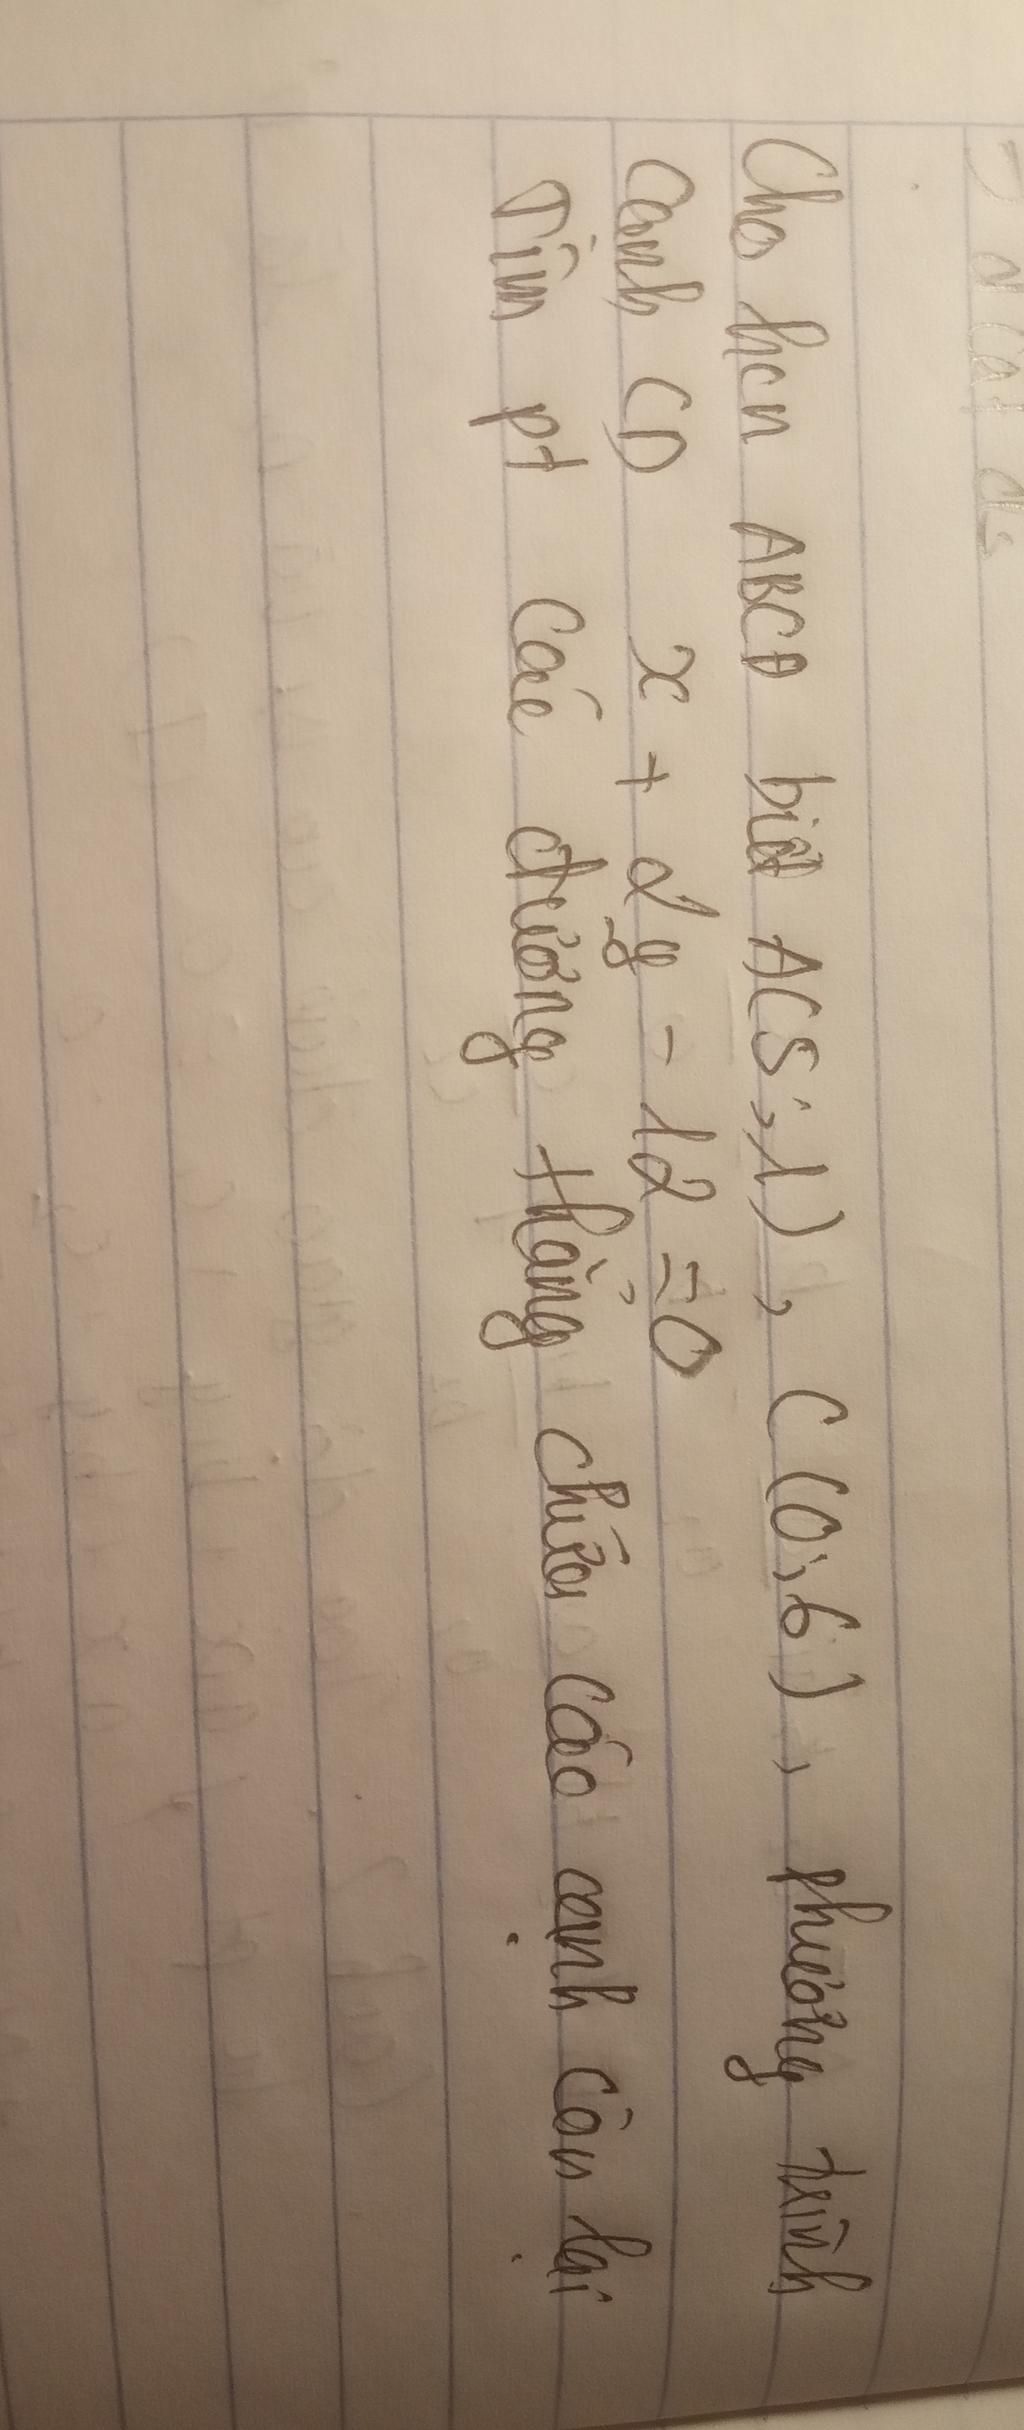 Cho hcn ABCD biết A(5;1), C(0;6), phương trình
cạnh CD x + 2y - 12 = 0
Tìm pt các đường thẳng chứa các cạnh còn lại